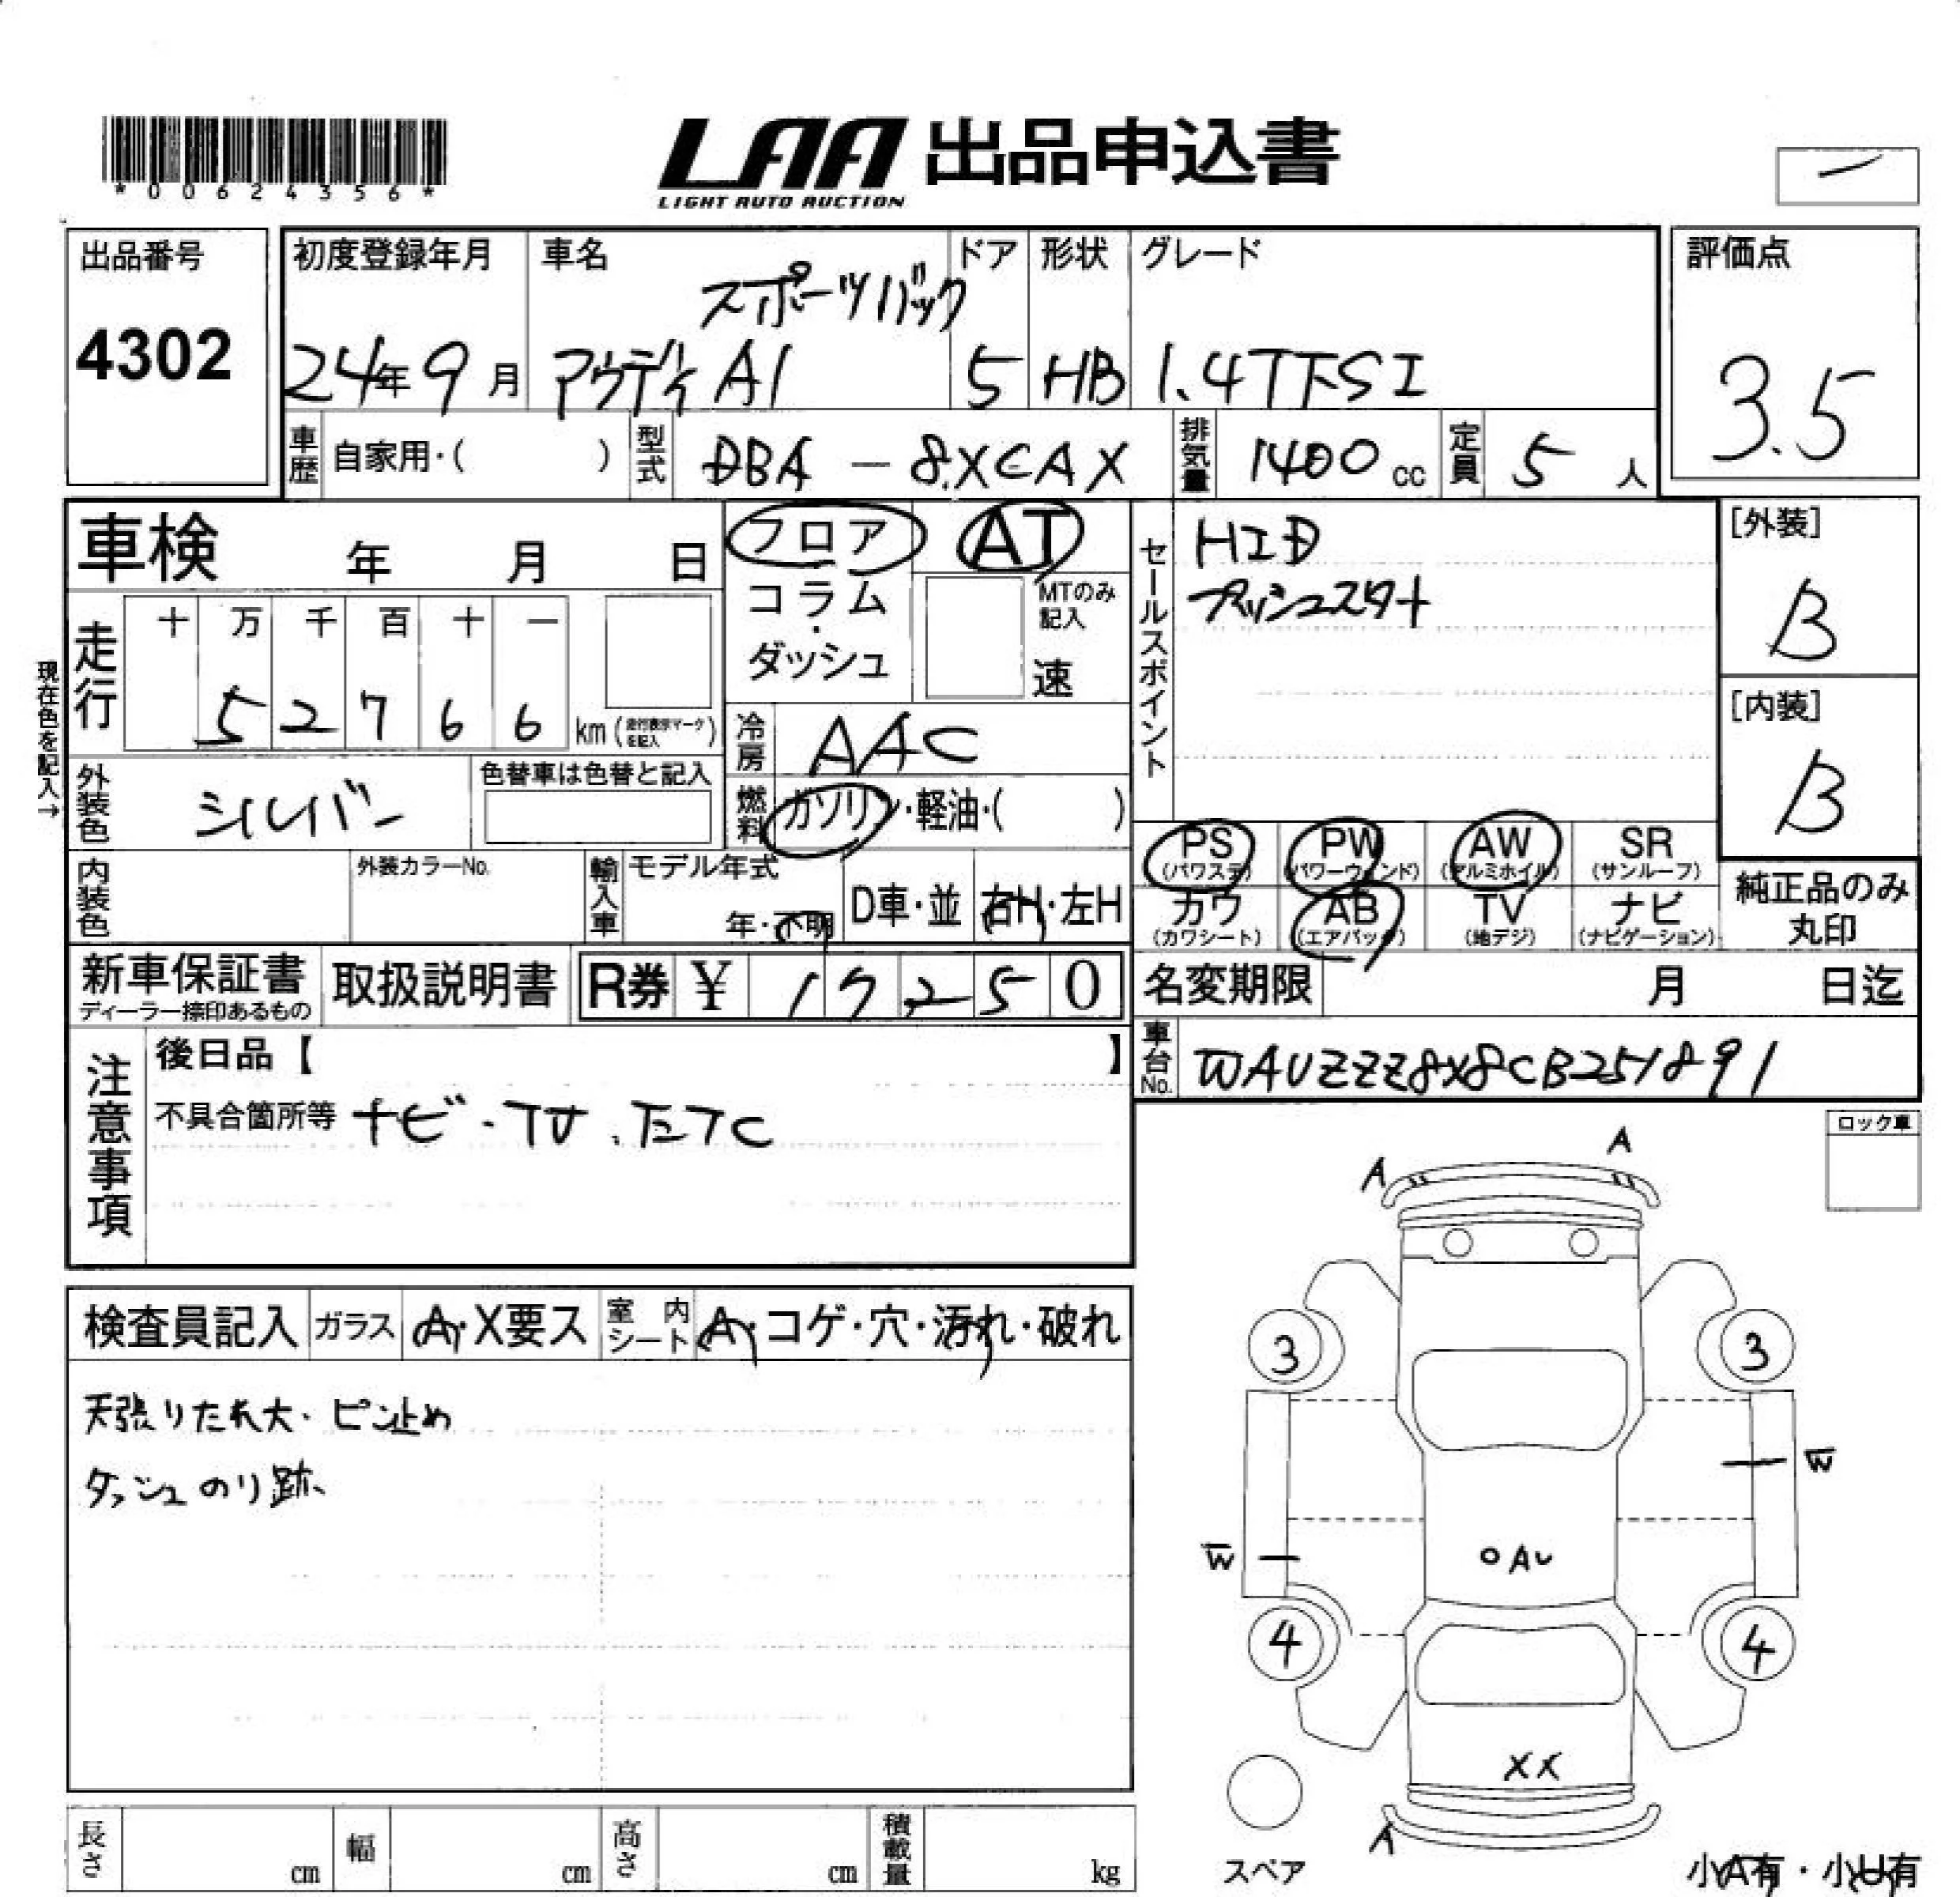 *00624356*
LAA 出品申込書
LIGHT AUTO AUCTION
出品番号
4302
初度登録年月
24年9月
車名
スポーツバック
アウディ A1
ドア
5
形状
HB
グレード
1.4TFSI
評価点
3.5
車歴 自家用・( )
型式 DBA - 8XCAX
排気量 1400cc
定員 5人
車検 年 月 日
フロア
コラム
・
ダッシュ
AT
MTのみ
記入
速
セールスポイント
HID
プッシュスタート
[外装]
B
[内装]
B
現在色を記入→
走行
十 万 千 百 十 一
5 2 7 6 6 km (走行表示マークを記入)
冷房 AAC
外装色 シルバー
色替車は色替と記入
燃料 ガソリン・軽油・( )
PS
(パワステ)
PW
(パワーウィンド)
AW
(アルミホイル)
SR
(サンルーフ)
内装色
外装カラーNo.
輸入車
モデル年式
年・不明
D車・並
右H・左H
カワ
(カワシート)
AB
(エアバック)
TV
(地デジ)
ナビ
(ナビゲーション)
純正品のみ
丸印
新車保証書
ディーラー捺印あるもの
取扱説明書
R券 ¥ 1 7 2 5 0
名変期限 月 日迄
車台No. WAUZZZ8X8CB251891
注意事項
後日品【 】
不具合箇所等 ナビ・TV・ETC
ロック車
A
A
検査員記入
ガラス A・X要ス
室内シート A・コゲ・穴・汚れ・破れ
天張りたれ大・ピン止め
ダッシュのり跡
3
3
W
W
AU
4
4
XX
A
スペア
小A有・小U有
長さ cm
幅 cm
高さ cm
積載量 kg